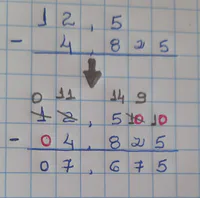 12,5
- 4,825
0 11 14 9
12,51010
- 04,825
07,675